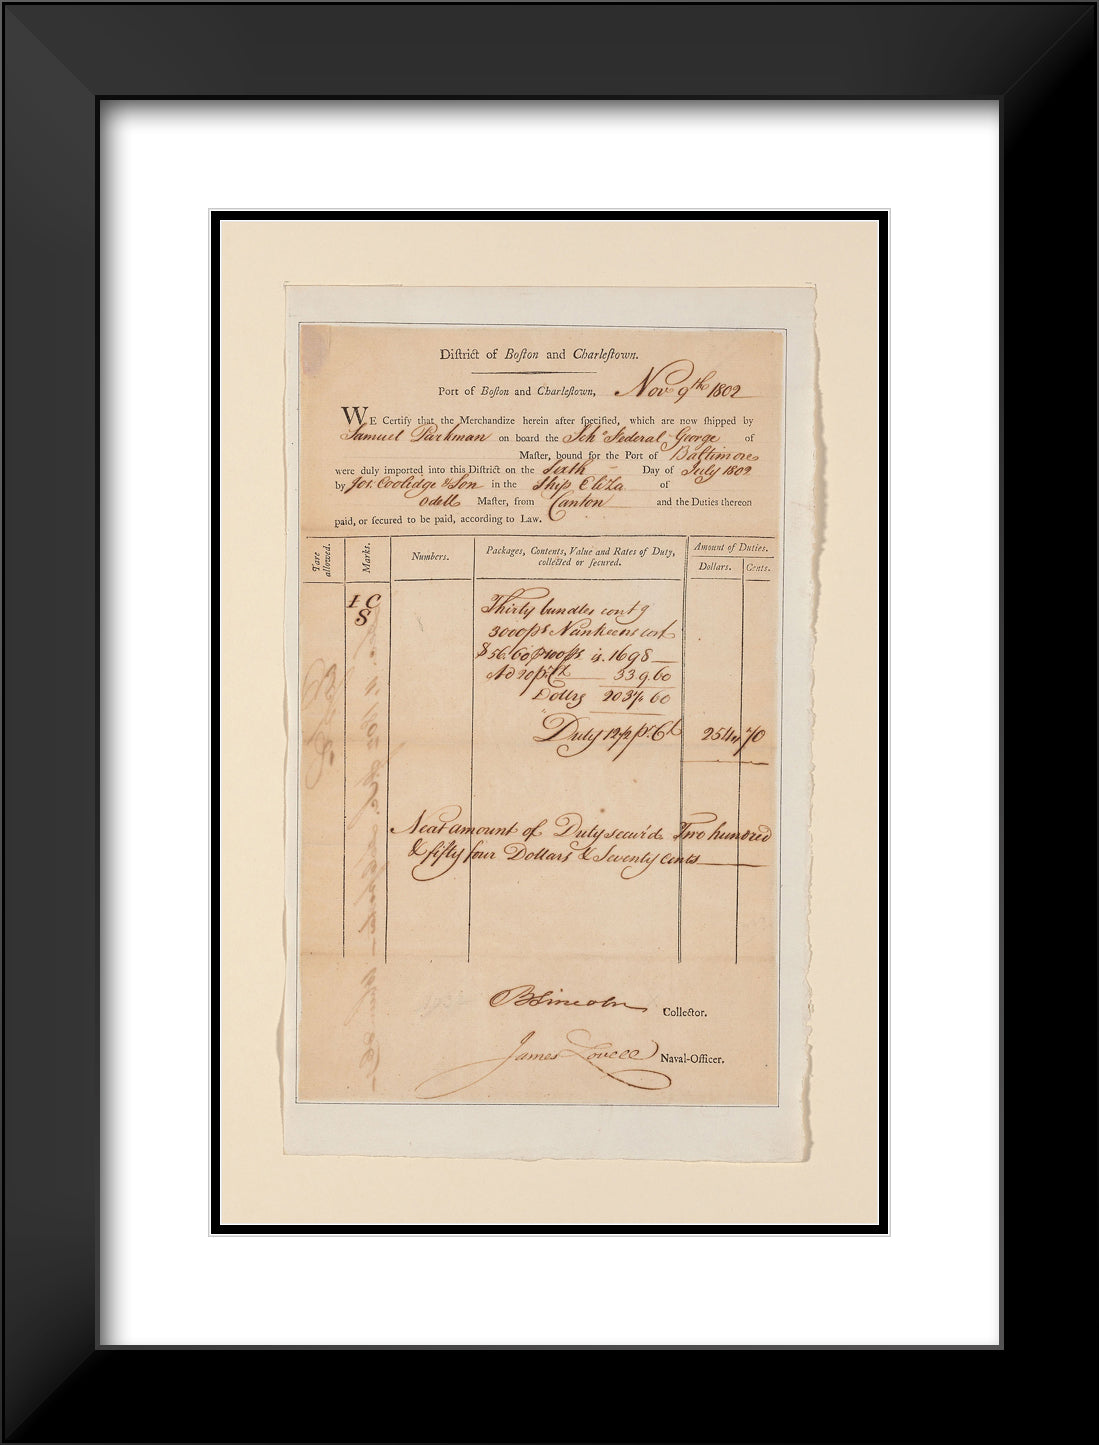 Diſtrict of Boſton and Charleſtown.
Port of Boſton and Charleſtown, Nov 9th 1802
WE Certify that the Merchandize herein after ſpecified, which are now ſhipped by
Samuel Parkman on board the Schr Federal George of
Maſter, bound for the Port of Baltimore
were duly imported into this Diſtrict on the Sixth Day of July 1802
by Jos. Coolidge & Son in the Ship Eliza of
Odell Maſter, from Canton and the Duties thereon
paid, or ſecured to be paid, according to Law.
Tare allowed. Marks. Numbers. Packages, Contents, Value and Rates of Duty, collected or ſecured. Amount of Duties.
Dollars. Cents.
I C
S
Thirty bundles contg
3000 ps Nankeens cost
$56.60 p 100 ps is. 1698
Ad 20 p. Ct 339.60
Dollrs 2037 60
Duty 12½ pr. Ct 254 70
Neat amount of Duty secur'd Two hundred
& fifty four Dollars & Seventy cents
B Lincoln Collector.
James Lovell Naval-Officer.